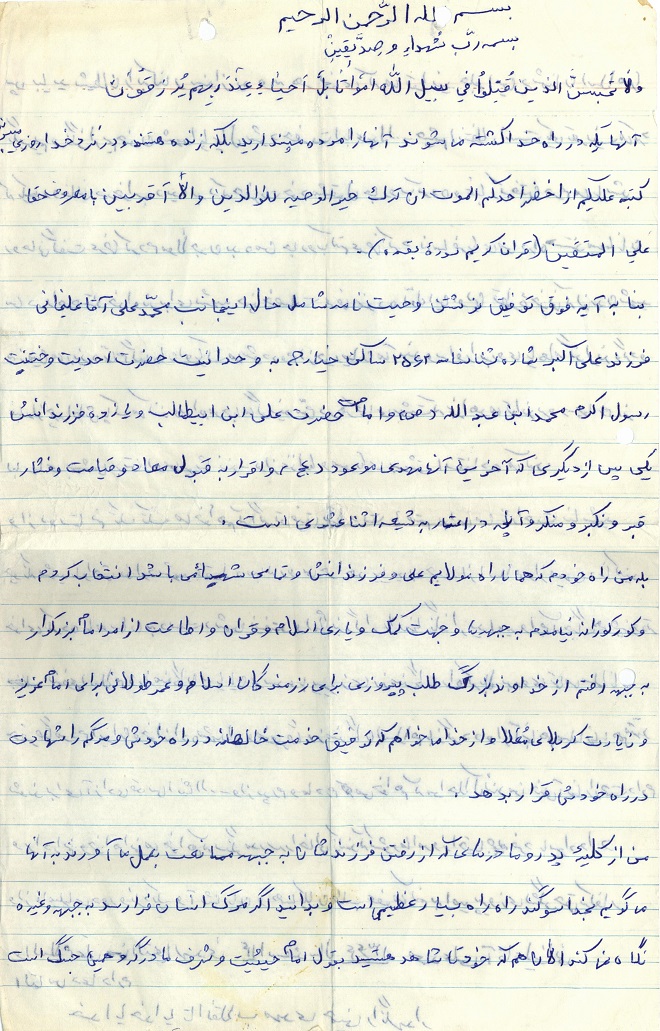 بسم الله الرحمن الرحیم
بسمه رب شهداء و صدیقین
ولا تحبسن الذین قتلوا فی سبیل الله امواتا بل احیاء عند ربهم یرزقون
آنهایکه در راه خدا کشته میشوند آنها را مرده مپندارید بلکه زنده هستند و در نزد خدا روزی
کتبه علیکم اذا حضر احدکم الموت ان ترک خیر الوصیه للوالدین والاقربین بامعروف حقا
علی المتقین (قرآن کریم سوره بقره).
بنا به آیه فوق توفیق نوشتن وصیت نامه شامل حال اینجانب محمد علی آقا علیخانی
فرزند علی اکبر شماره شناسنامه ۲۵۶۲ ساکن خیارجه به وحدانیت حضرت احدیت و ختمیت
رسول اکرم محمد ابن عبدالله (ص) و امامت حضرت علی ابن ابیطالب و یازده فرزندانش
یکی پس از دیگری که آخرین آنها مهدی موعود (عج) و اقرار به قبول معاد و قیامت و فشار
قبر و نکیر و منکر و آنچه در اعتبار به شیعه اثنا عشری است .
بله من راه خودم که همانا راه مولایم علی و فرزندانش و تمامی شهدائی باشد انتخاب کردم
و کورکورانه نیامدم به جبهه ها و جهت کمک و یاری اسلام و قرآن و اطاعت از امر امام بزرگوار
به جبهه رفتم از خداوند بزرگ طلب پیروزی برای رزمندگان اسلام و عمر طولانی برای امام عزیز
و زیارت کربلای معلا و از خدا میخواهم که توفیق خدمت خالصانه در راه خودش و مرگم را شهادت
در راه خودش قرار بدهد .
من از کلیهٔ پدر و مادرهائی که از رفتن فرزندشان به جبهه ممانعت بعمل می آورند به آنها
میگویم بخدا سوگند راه راه بسیار عظیمی است و بدانید اگر مرگ انسان فرا رسد به جبهه و غیره
نگاه نمی کند الان هم که خودتان شاهد هستید بقول امام حیثیت و شرف ما در گرو همین جنگ است